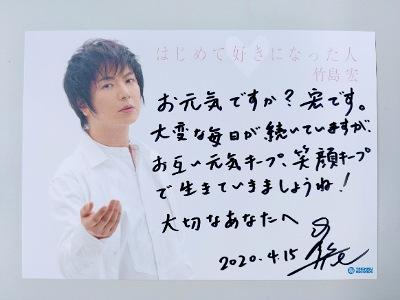 はじめて好きになった人
竹島 宏
お元気ですか？宏です。
大変な毎日が続いていますが、
お互い元気キープ、笑顔キープ
で生きていきましょうね！
大切なあなたへ
2020.4.15